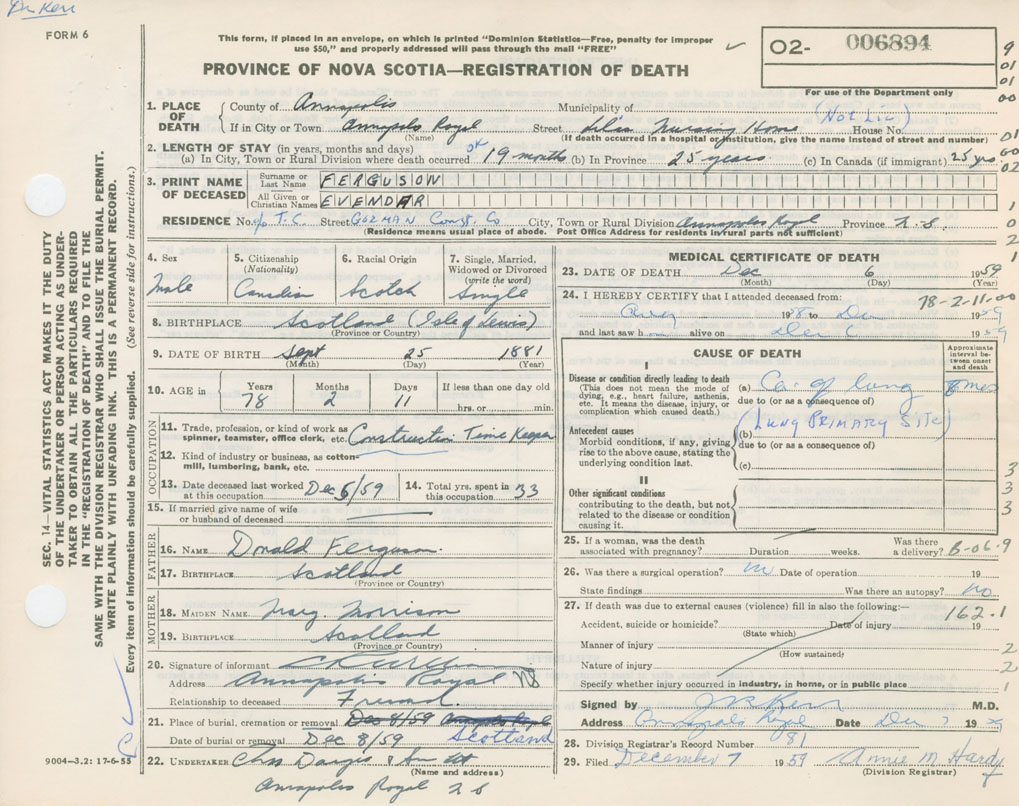 Dr Kerr
FORM 6
This form, if placed in an envelope, on which is printed "Dominion Statistics—Free, penalty for improper
use $50," and properly addressed will pass through the mail "FREE"
PROVINCE OF NOVA SCOTIA—REGISTRATION OF DEATH
O2- 006894
For use of the Department only
9
01
01
00
1. PLACE OF DEATH
County of Annapolis Municipality of (Not Lic)
If in City or Town Annapolis Royal Street Nursing Home House No.
(Name) (If death occurred in a hospital or institution, give the name instead of street and number)
01
60
02
2. LENGTH OF STAY (in years, months and days)
(a) In City, Town or Rural Division where death occurred 19 months (b) In Province 25 years (c) In Canada (if immigrant) 25 yrs.
3. PRINT NAME OF DECEASED
Surname or Last Name FERGUSON
All Given or Christian Names EVENDAR
RESIDENCE No. c/o T.C. Street GORMAN Const. Co City, Town or Rural Division Annapolis Royal Province N.S
(Residence means usual place of abode. Post Office Address for residents in rural parts not sufficient)
1
0
2
1
4. Sex
Male
5. Citizenship
(Nationality)
Canadian
6. Racial Origin
Scotch
7. Single, Married,
Widowed or Divorced
(write the word)
Single
8. BIRTHPLACE Scotland (Isle of Lewis)
(Province or Country)
9. DATE OF BIRTH Sept 25 1881
(Month) (Day) (Year)
10. AGE in
Years Months Days If less than one day old
78 2 11 hrs. or min.
OCCUPATION
11. Trade, profession, or kind of work as
spinner, teamster, office clerk, etc. Construction Time Keeper
12. Kind of industry or business, as cotton-
mill, lumbering, bank, etc.
13. Date deceased last worked
at this occupation Dec 5/59
14. Total yrs. spent in
this occupation 33
15. If married give name of wife
or husband of deceased
FATHER
16. NAME Donald Ferguson
17. BIRTHPLACE Scotland
(Province or Country)
MOTHER
18. MAIDEN NAME Mary Morrison
19. BIRTHPLACE Scotland
(Province or Country)
20. Signature of informant
Address Annapolis Royal NS
Relationship to deceased Friend
21. Place of burial, cremation or removal Dec 8/59 Annapolis Royal
Scotland
Date of burial or removal Dec 8/59
22. UNDERTAKER
(Name and address)
Annapolis Royal
9004—3.2: 17-6-55
SEC. 14—VITAL STATISTICS ACT MAKES IT THE DUTY
OF THE UNDERTAKER OR PERSON ACTING AS UNDER-
TAKER TO OBTAIN ALL THE PARTICULARS REQUIRED
IN THE "REGISTRATION OF DEATH" AND TO FILE THE
SAME WITH THE DIVISION REGISTRAR WHO SHALL ISSUE THE BURIAL PERMIT.
WRITE PLAINLY WITH UNFADING INK. THIS IS A PERMANENT RECORD.
Every item of information should be carefully supplied. (See reverse side for instructions.)
MEDICAL CERTIFICATE OF DEATH
23. DATE OF DEATH Dec 6 1959
(Month) (Day) (Year)
24. I HEREBY CERTIFY that I attended deceased from: 78-2-11.00
1958 to Dec 1959
and last saw h alive on Dec 1959
CAUSE OF DEATH
Approximate
interval be-
tween onset
and death
I
Disease or condition directly leading to death
(This does not mean the mode of
dying, e.g., heart failure, asthenia,
etc. It means the disease, injury, or
complication which caused death.)
(a) Ca. of lung mos
due to (or as a consequence of)
Antecedent causes
Morbid conditions, if any, giving
rise to the above cause, stating the
underlying condition last.
(b) (LUNG PRIMARY SITE)
due to (or as a consequence of)
(c)
II
Other significant conditions
contributing to the death, but not
related to the disease or condition
causing it.
3
3
3
3
25. If a woman, was the death
associated with pregnancy? Duration weeks. Was there
a delivery? B-06.9
26. Was there a surgical operation? no Date of operation 19
State findings Was there an autopsy? no
27. If death was due to external causes (violence) fill in also the following:— 162.1
Accident, suicide or homicide? Date of injury 19
(State which)
Manner of injury 2
(How sustained)
Nature of injury 2
Specify whether injury occurred in industry, in home, or in public place 1
Signed by Kerr M.D.
Address Annapolis Royal Date Dec 7 19
28. Division Registrar's Record Number 81
29. Filed December 7 1959 Annie M Hardy
(Division Registrar)